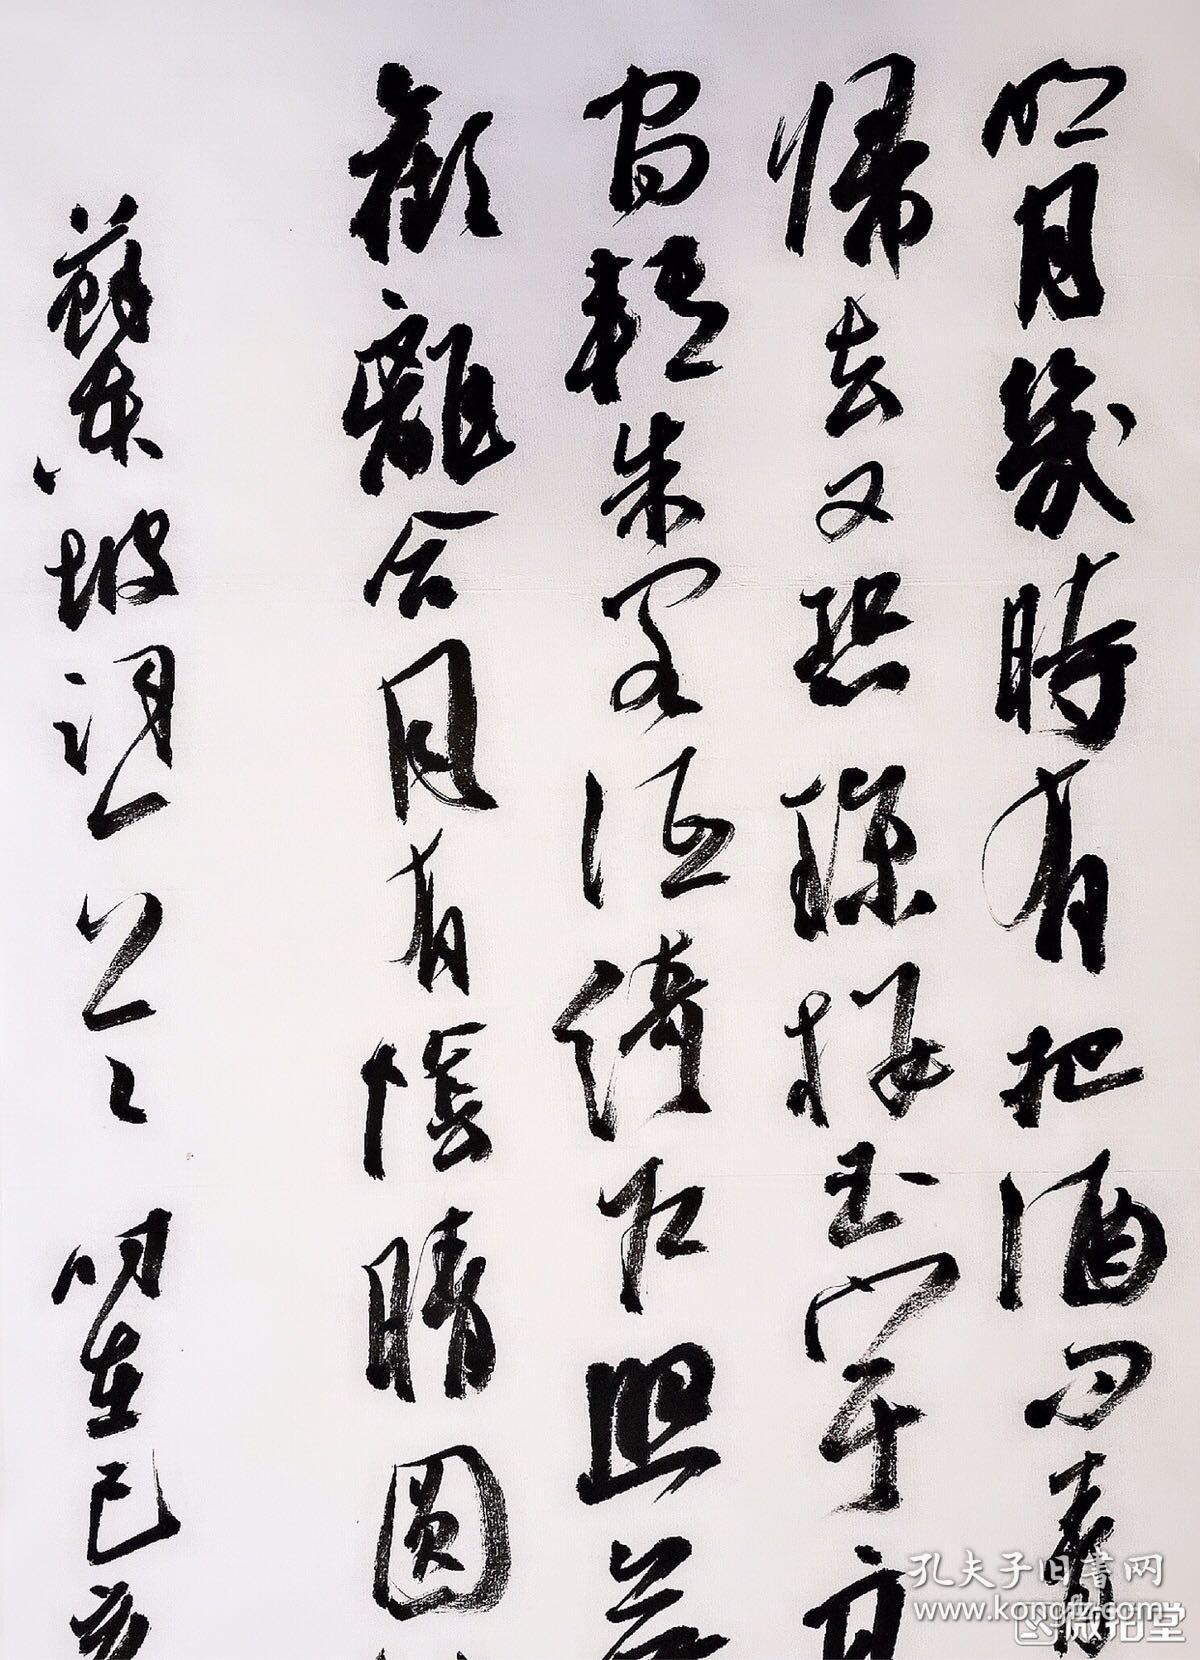 明月幾時有把酒問青
歸去又恐瓊樓玉宇高
間轉朱閣低綺戶照無
歡離合月有陰晴圓
蘇東坡詞一首 時在己亥
孔夫子旧書网
www.kongfz.com
微拍堂